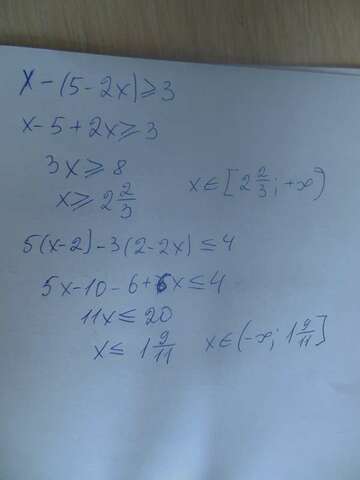 x - (5 - 2x) ≥ 3
x - 5 + 2x ≥ 3
3x ≥ 8
x ≥ 2 2/3 x ∈ [2 2/3; +∞)
5(x-2) - 3(2-2x) ≤ 4
5x - 10 - 6 + 6x ≤ 4
11x ≤ 20
x ≤ 1 9/11 x ∈ (-∞; 1 9/11]